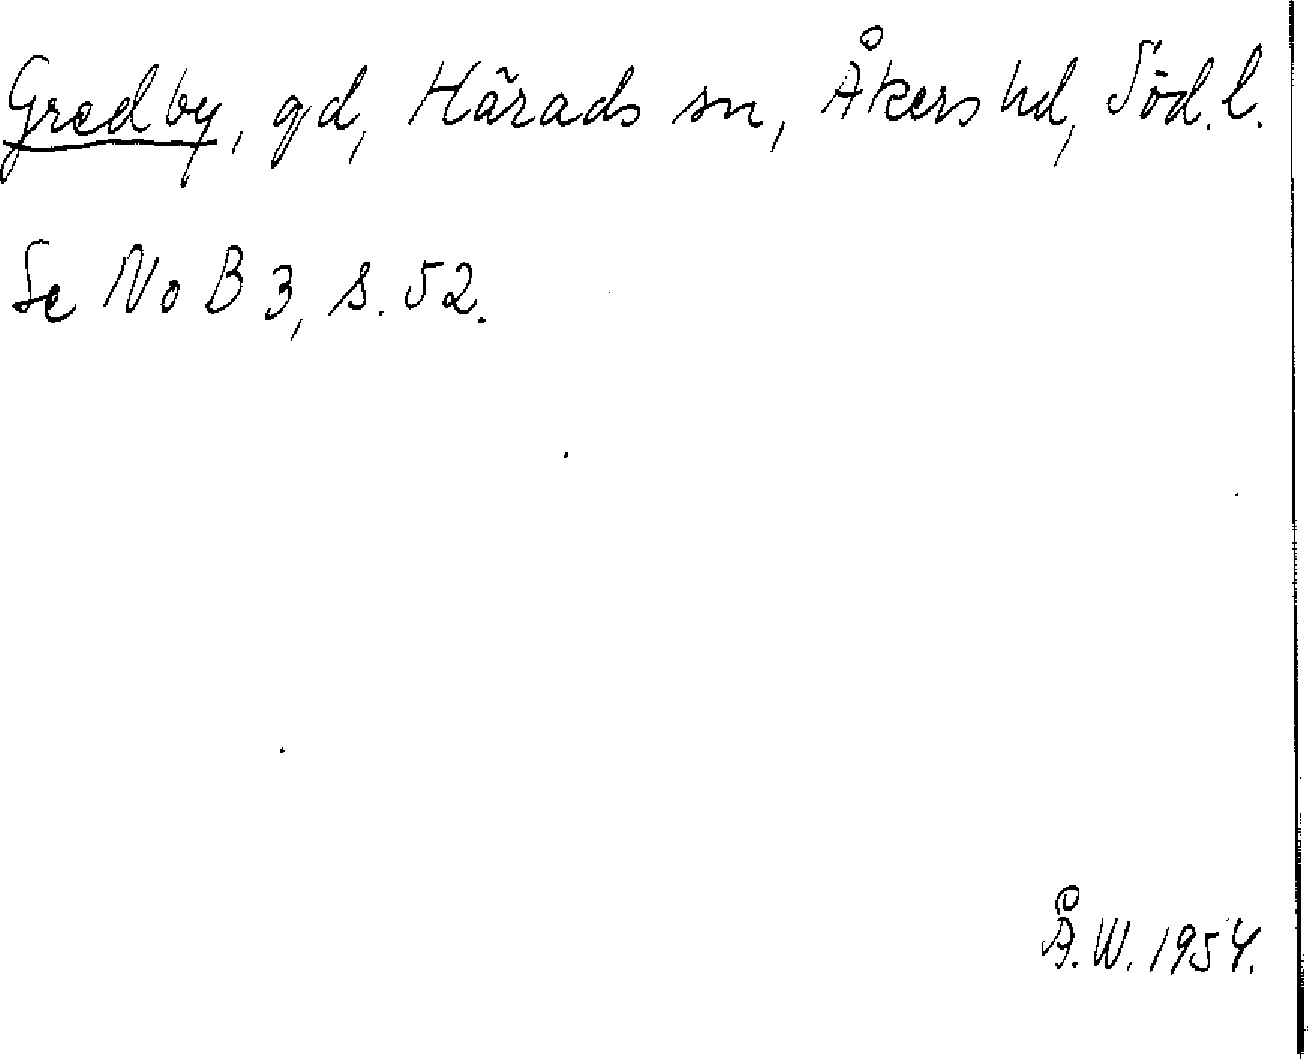 Gredby, gd, Härads sn, Åkers hd, Söd.l.
Se NoB 3, s. 52.
Å.W. 1954.